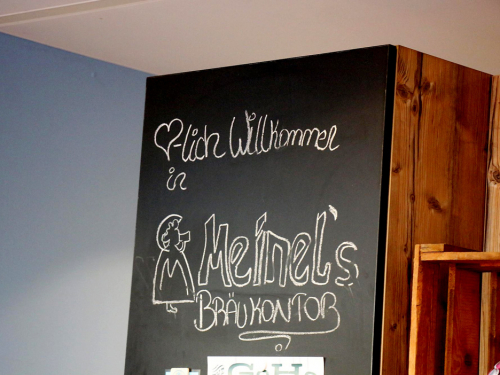 ♡-lich Willkommen
in
Meinel's
BRÄUKONTOR